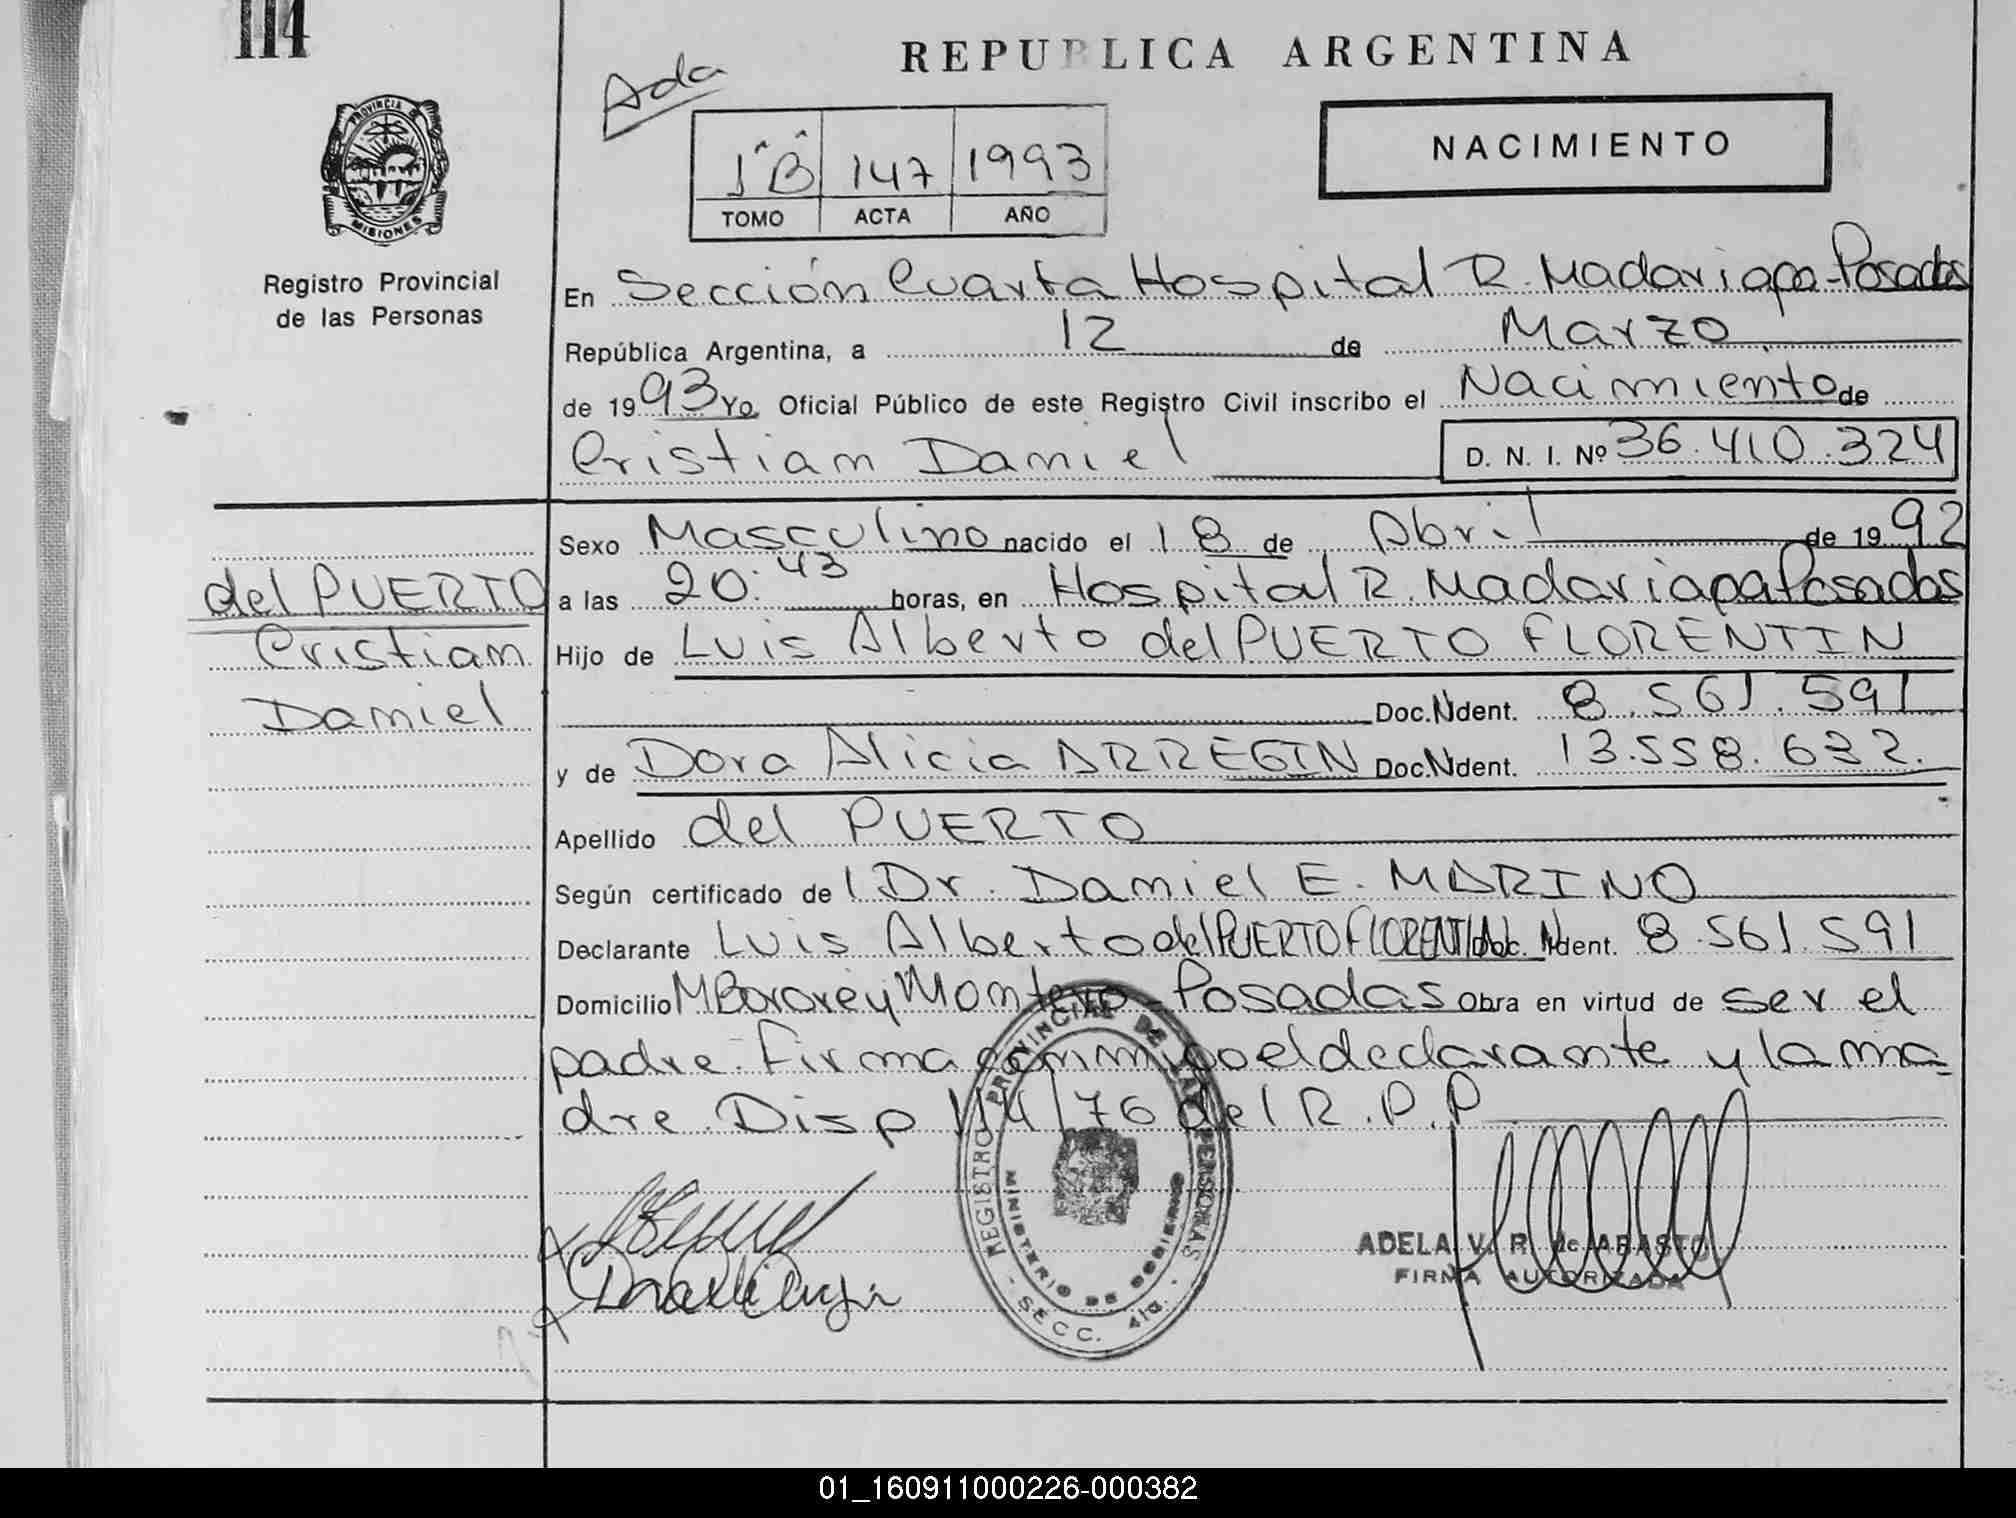 114
REPUBLICA ARGENTINA
Ada
1º B 147 1993
TOMO ACTA AÑO
NACIMIENTO
PROVINCIA
MISIONES
Registro Provincial
de las Personas
En Sección Cuarta Hospital R. Madariaga-Posadas
República Argentina, a 12 de Marzo
de 1993 Yo Oficial Público de este Registro Civil inscribo el Nacimiento de
Cristiam Daniel D. N. I. Nº 36.410.324
Sexo Masculino nacido el 18 de Abril de 1992
a las 20:43 horas, en Hospital R. Madariaga Posadas
Hijo de Luis Alberto del PUERTO FLORENTIN
Doc. Ident. 8.561.591
y de Dora Alicia ARREGIN Doc. Ident. 13.558.632.
Apellido del PUERTO
Según certificado de l Dr. Daniel E. MARINO
Declarante Luis Alberto del PUERTO FLORENTIN Doc. Ident. 8.561.591
Domicilio M Bororé y Montero - Posadas Obra en virtud de ser el
padre. Firma conmigo el declarante y la ma-
dre. Disp 114/76 del R.P.P
del PUERTO
Cristiam
Daniel
REGISTRO PROVINCIAL DE LAS PERSONAS
MINISTERIO DE GOBIERNO
SECC. 4ta.
ADELA V. R. de ABASTO
FIRMA AUTORIZADA
01_160911000226-000382